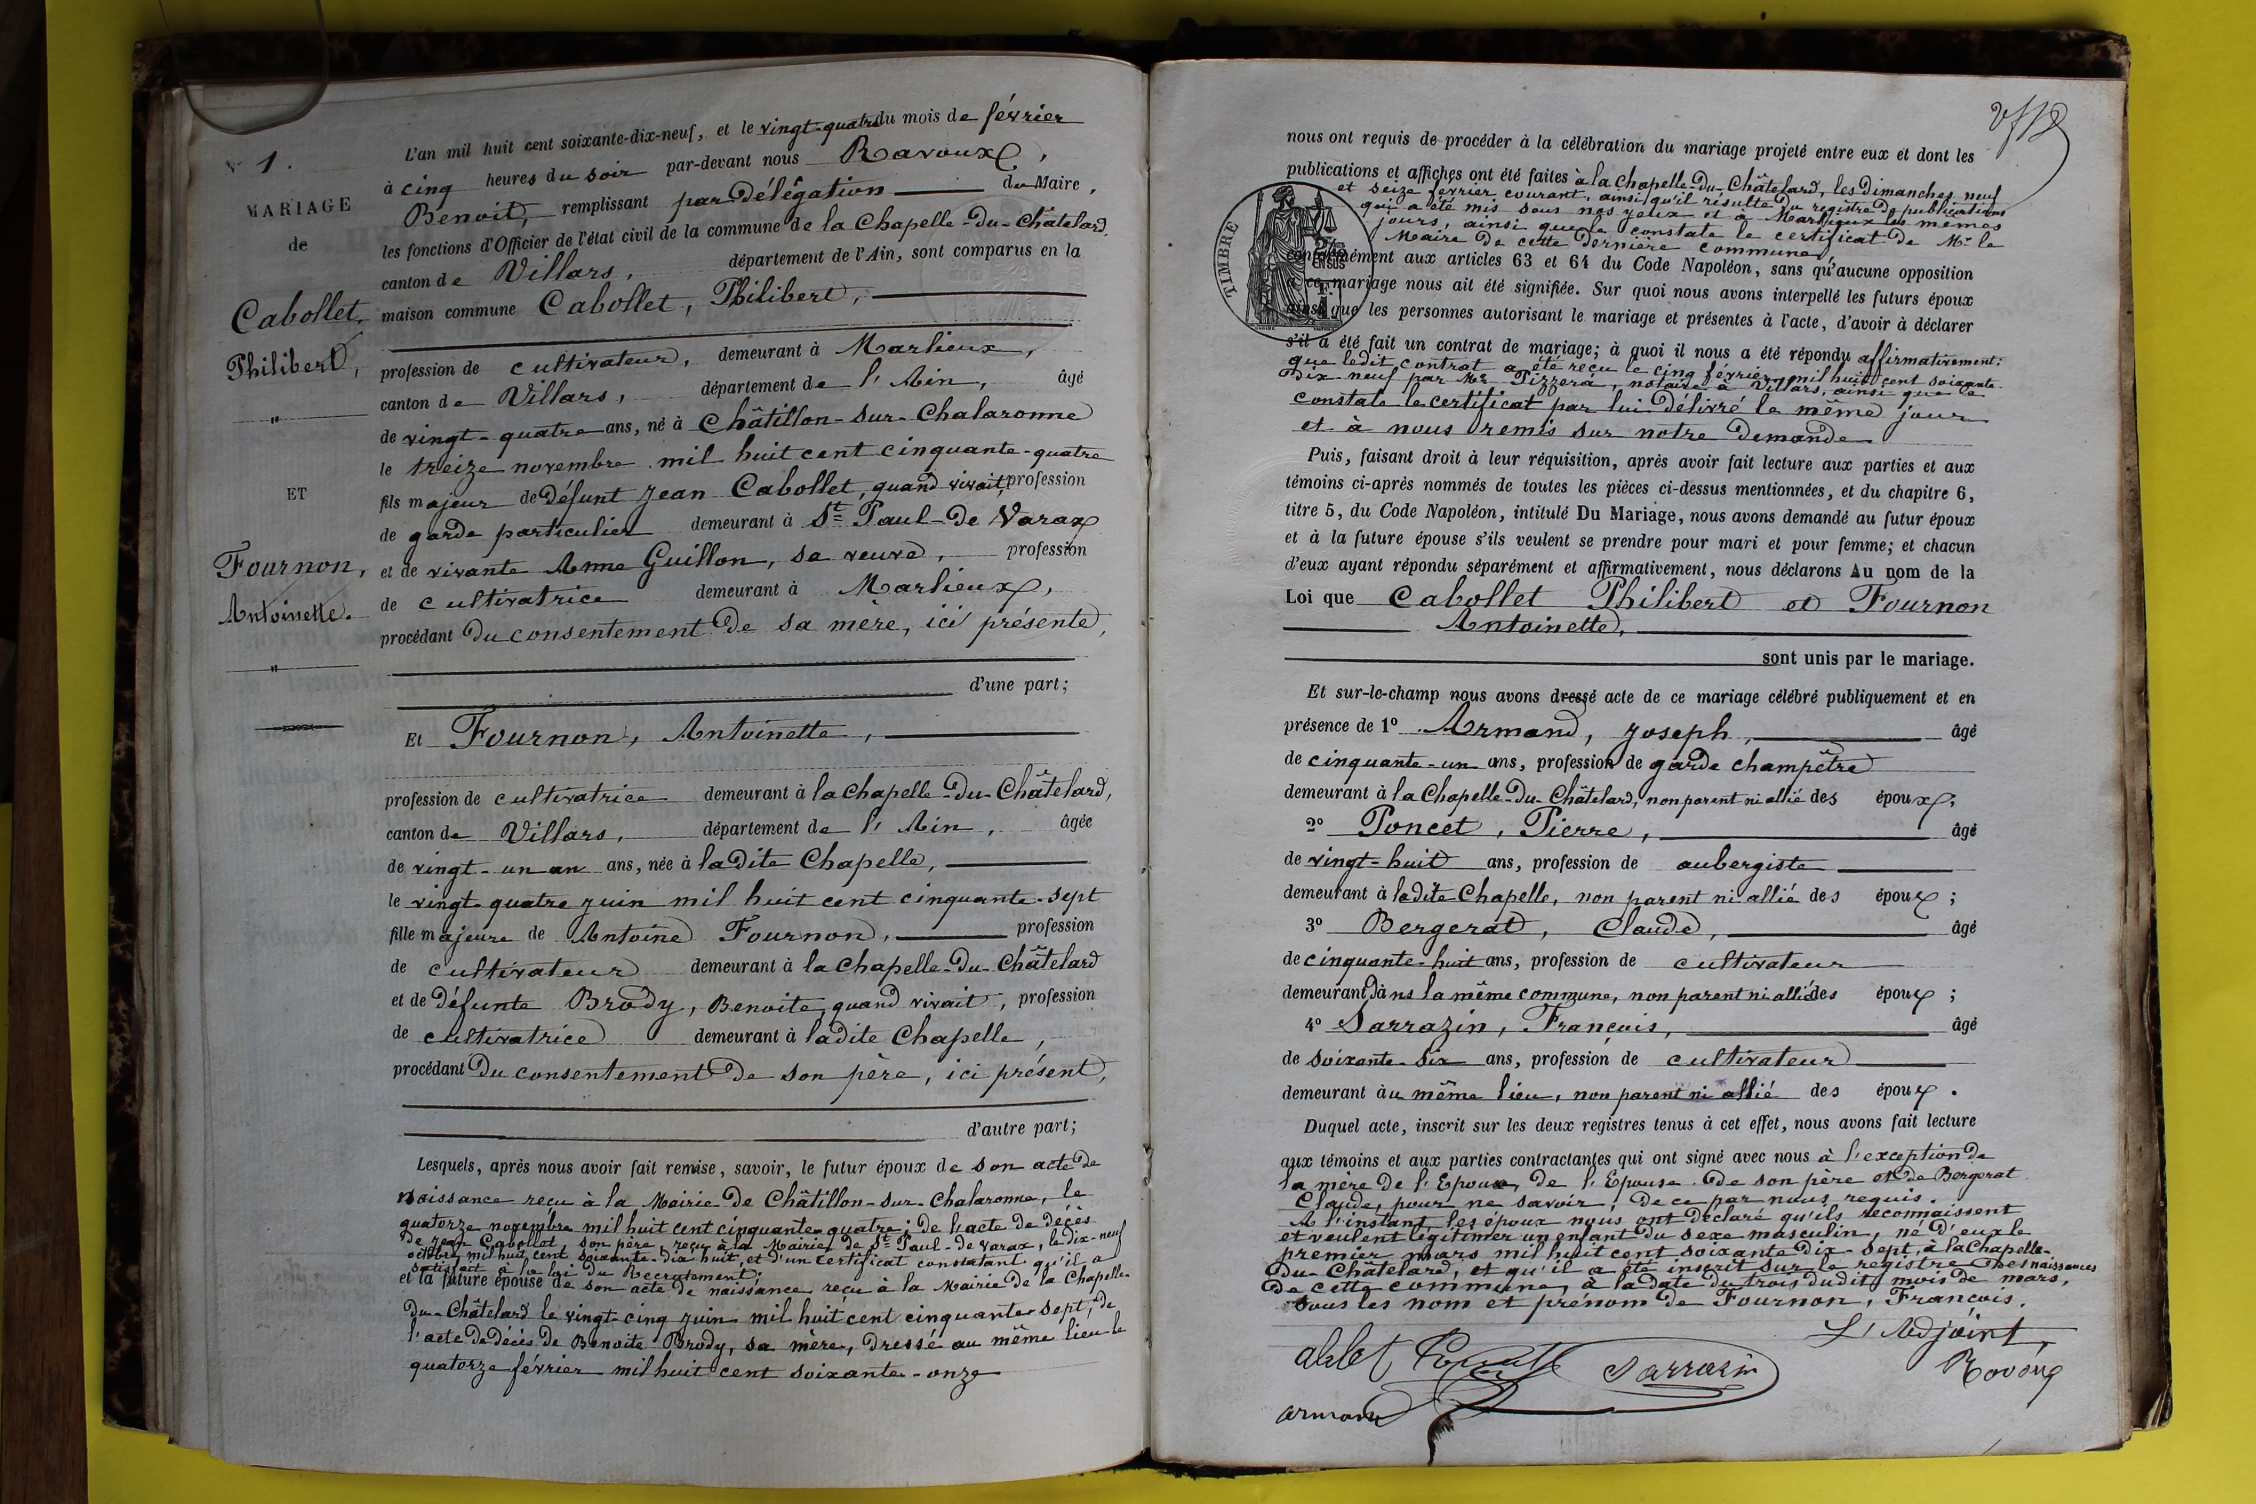 N° 1.
MARIAGE
de
Cabollet,
Philibert,
"
ET
Fournon,
Antoinette.
"
L'an mil huit cent soixante-dix-neuf, et le vingt-quatre du mois de février
à cinq heures du soir par-devant nous Ravoux,
Benoit, remplissant par délégation du Maire,
les fonctions d'Officier de l'état civil de la commune de la Chapelle-du-Châtelard,
canton de Villars, département de l'Ain, sont comparus en la
maison commune Cabollet, Philibert,
profession de cultivateur, demeurant à Marlieux,
canton de Villars, département de l'Ain, âgé
de vingt-quatre ans, né à Châtillon-sur-Chalaronne
le treize novembre mil huit cent cinquante-quatre
fils majeur de défunt Jean Cabollet, quand vivait, profession
de garde particulier demeurant à St Paul-de Varax
et de vivante Anne Guillon, sa veuve, profession
de cultivatrice demeurant à Marlieux,
procédant du consentement de sa mère, ici présente,
d'une part;
Et Fournon, Antoinette,
profession de cultivatrice demeurant à la Chapelle-du-Châtelard,
canton de Villars, département de l'Ain, âgée
de vingt-un an ans, née à ladite Chapelle,
le vingt-quatre juin mil huit cent cinquante-sept
fille majeure de Antoine Fournon, profession
de cultivateur demeurant à la Chapelle-du-Châtelard
et de défunte Brody, Benoite, quand vivait, profession
de cultivatrice demeurant à ladite Chapelle,
procédant du consentement de son père, ici présent,
d'autre part;
Lesquels, après nous avoir fait remise, savoir, le futur époux de son acte de
naissance reçu à la Mairie de Châtillon-sur-Chalaronne, le
quatorze novembre mil huit cent cinquante-quatre; de l'acte de décès
de Jean Cabollet, son père, reçu à la Mairie de St Paul-de Varax, le dix-neuf
octobre mil huit cent soixante-dix huit, et d'un certificat constatant qu'il a
satisfait à la loi du Recrutement;
et la future épouse de son acte de naissance reçu à la Mairie de la Chapelle-
du-Châtelard le vingt-cinq juin mil huit cent cinquante-sept; de
l'acte de décès de Benoite Brody, sa mère, dressé au même lieu le
quatorze février mil huit cent soixante-onze
nous ont requis de procéder à la célébration du mariage projeté entre eux et dont les
publications et affiches ont été faites à la Chapelle-du-Châtelard, les Dimanches neuf
et seize février courant, ainsi qu'il résulte du registre de publications
qui a été mis sous nos yeux et à Marlieux les mêmes
jours, ainsi que le constate le certificat de Mr le
Maire de cette dernière commune,
TIMBRE
conformément aux articles 63 et 64 du Code Napoléon, sans qu'aucune opposition
à ce mariage nous ait été signifiée. Sur quoi nous avons interpellé les futurs époux
ainsi que les personnes autorisant le mariage et présentes à l'acte, d'avoir à déclarer
s'il a été fait un contrat de mariage; à quoi il nous a été répondu affirmativement:
que ledit contrat a été reçu le cinq février mil huit cent soixante-
dix-neuf par Me Pizzera, notaire à Villars, ainsi que le
constate le certificat par lui délivré le même jour
et à nous remis sur notre demande
Puis, faisant droit à leur réquisition, après avoir fait lecture aux parties et aux
témoins ci-après nommés de toutes les pièces ci-dessus mentionnées, et du chapitre 6,
titre 5, du Code Napoléon, intitulé Du Mariage, nous avons demandé au futur époux
et à la future épouse s'ils veulent se prendre pour mari et pour femme; et chacun
d'eux ayant répondu séparément et affirmativement, nous déclarons Au nom de la
Loi que Cabollet Philibert et Fournon
Antoinette,
sont unis par le mariage.
Et sur-le-champ nous avons dressé acte de ce mariage célébré publiquement et en
présence de 1° Armand, Joseph, âgé
de cinquante-un ans, profession de garde champêtre
demeurant à la Chapelle-du-Châtelard, non parent ni allié des époux;
2° Poncet, Pierre, âgé
de vingt-huit ans, profession de aubergiste
demeurant à ladite Chapelle, non parent ni allié des époux;
3° Bergerat, Claude, âgé
de cinquante-huit ans, profession de cultivateur
demeurant dans la même commune, non parent ni allié des époux;
4° Sarrazin, François, âgé
de soixante-six ans, profession de cultivateur
demeurant au même lieu, non parent ni allié des époux.
Duquel acte, inscrit sur les deux registres tenus à cet effet, nous avons fait lecture
aux témoins et aux parties contractantes qui ont signé avec nous à l'exception de
la mère de l'Epoux, de l'Epouse de son père et de Bergerat
Claude, pour ne savoir, de ce par nous requis.
A l'instant, les époux nous ont déclaré qu'ils reconnaissent
et veulent légitimer un enfant du sexe masculin, né d'eux le
premier mars mil huit cent soixante dix-sept, à la Chapelle-
du-Châtelard, et qu'il a été inscrit sur le registre des naissances
de cette commune, à la date du trois dudit mois de mars,
sous les nom et prénom de Fournon, François.
L'Adjoint,
Sarrazin
Ravoux
armand